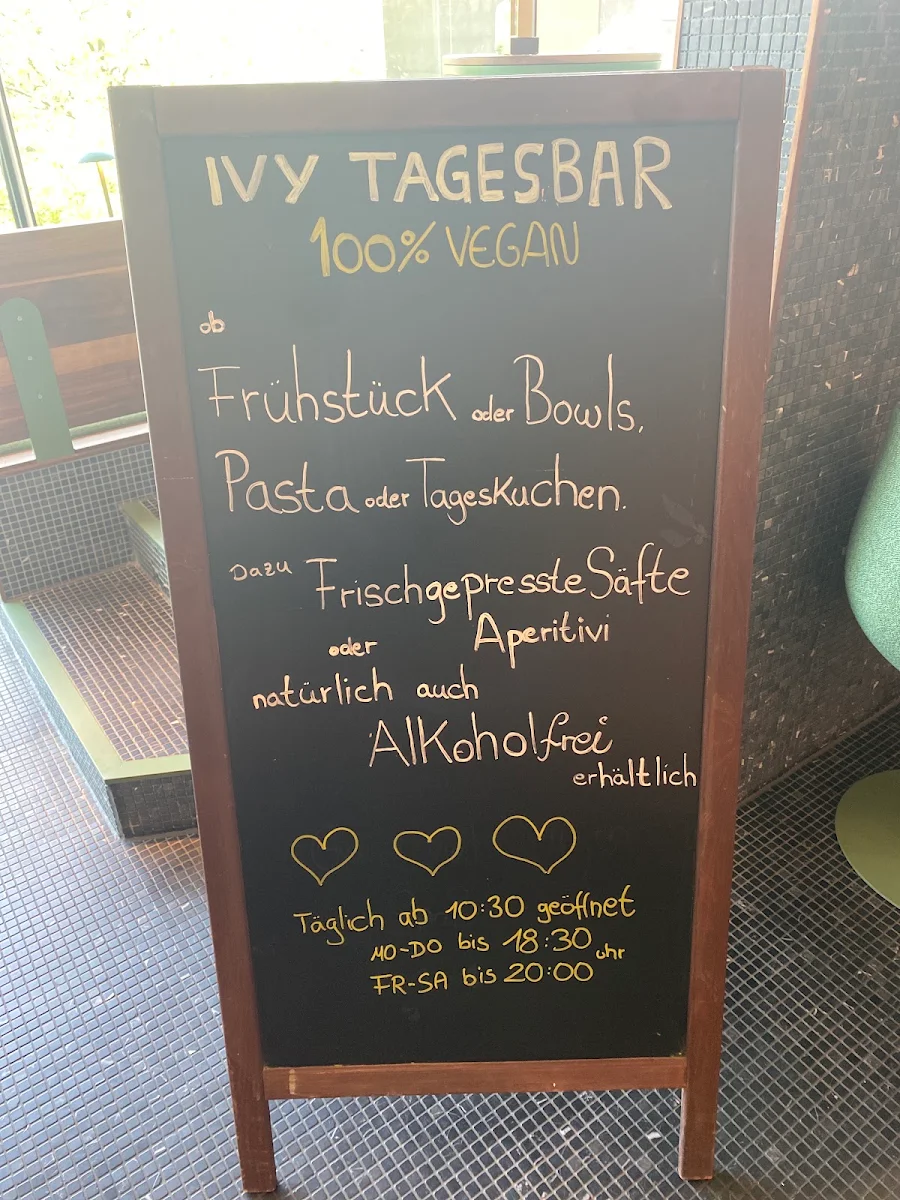 IVY TAGESBAR
100% VEGAN
ob
Frühstück oder Bowls,
Pasta oder Tageskuchen.
Dazu Frischgepresste Säfte
oder Aperitivi
natürlich auch
Alkoholfrei
erhältlich
Täglich ab 10:30 geöffnet
MO-DO bis 18:30 uhr
FR-SA bis 20:00